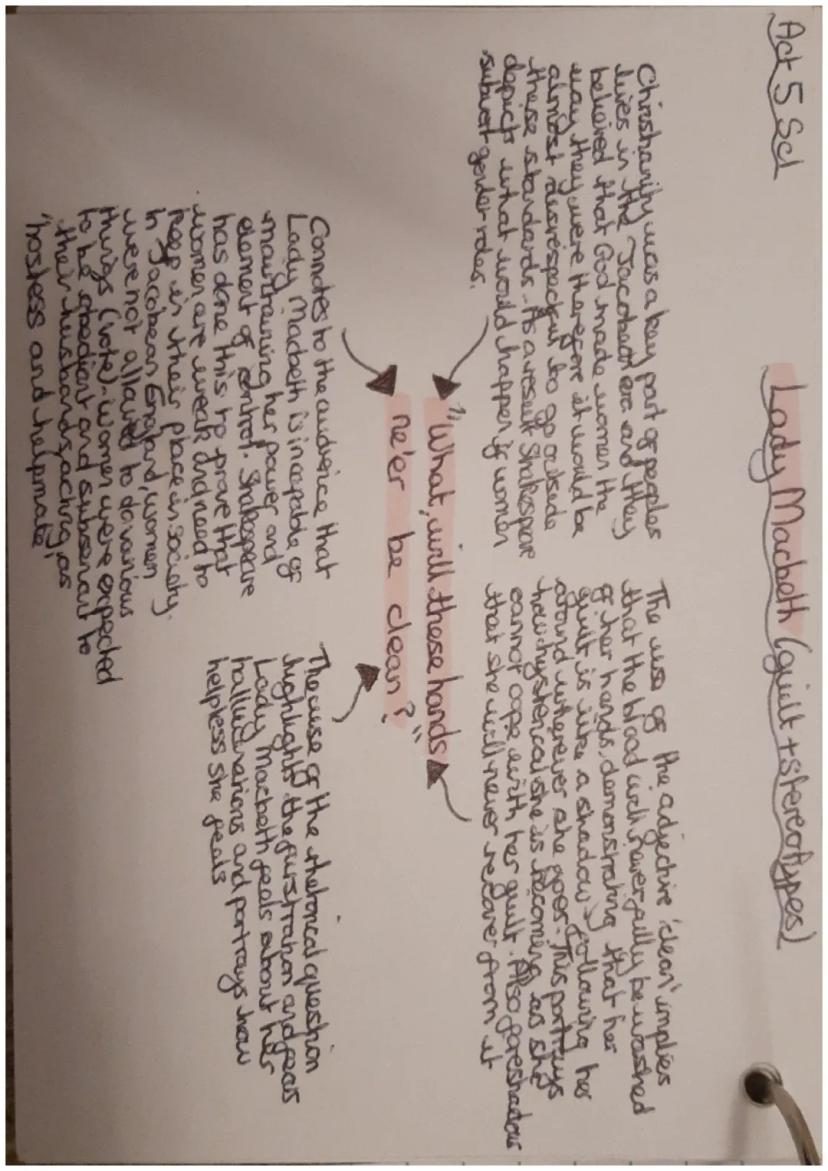 Act 5 Sc1
Lady Macbeth (guilt + stereotypes)
Christianity was a key part of peoples
lives in the Jacobean era and they
believed that God made women the
way they were therefore it would be
almost disrespectful to go outside
these standards. As a result Shakespeare
depicts what would happen if women
subvert gender roles.
The use of the adjective 'clean' implies
that the blood will never fully be washed
of her hands, demonstrating that her
guilt is like a shadow, following her
around wherever she goes. This portrays
how hysterical she is becoming as she
cannot cope with her guilt. Also foreshadows
that she will never recover from it
"What, will these hands
ne'er be clean?"
Connotes to the audience that
Lady Macbeth is incapable of
maintaining her power and
element of control. Shakespeare
has done this to prove that
women are weak and need to
keep in their place in society.
In Jacobean England, women
were not allowed to do various
things (vote). Women were expected
to be obedient and subservient to
their husbands, acting as
'hostess and helpmate'
The use of the rhetorical question
highlights the frustration and fears
Lady Macbeth feels about her
hallucinations and portrays how
helpless she feels